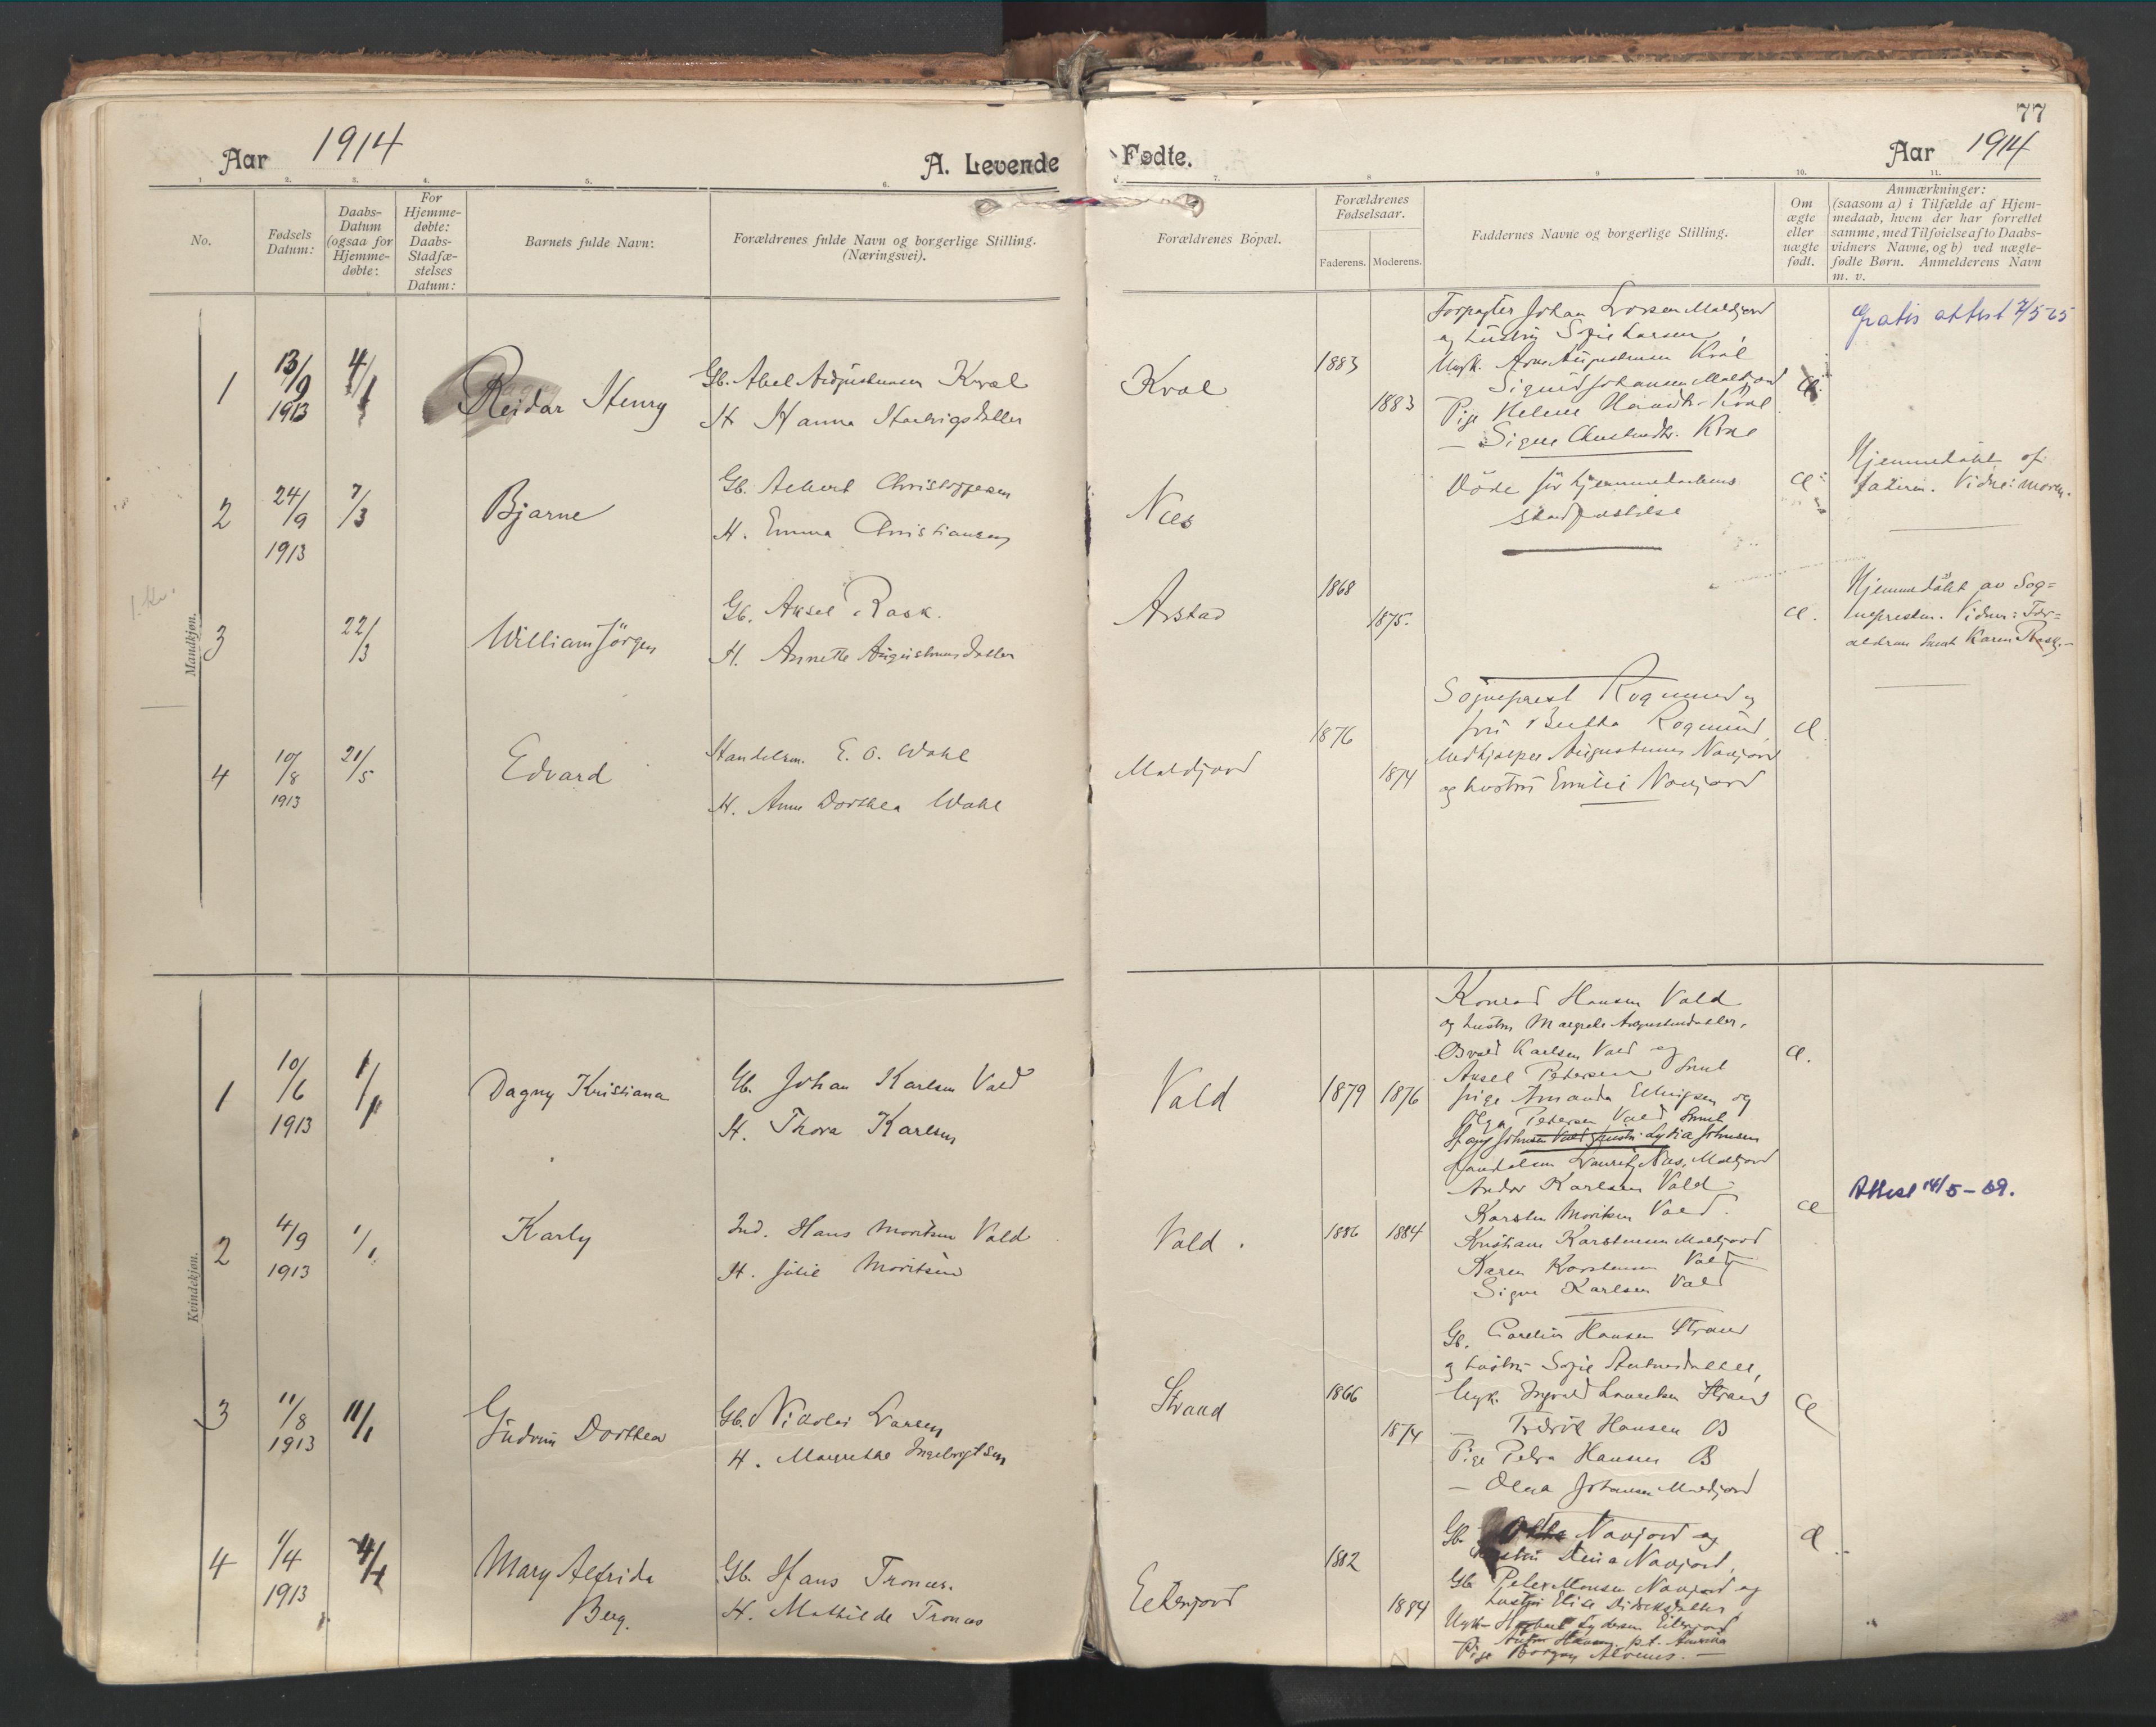 77
Aar 1914
A. Levende Fødte.
Aar 1914
1. 2. 3. 4. 5. 6. 7. 8 9 10. 11.
No.
Fødsels Datum:
Daabs-
Datum
(ogsaa for
Hjemme-
døbte:
For
Hjemme-
døbte:
Daabs-
Stadfæ-
stelses
Datum:
Barnets fulde Navn:
Forældrenes fulde Navn og borgerlige Stilling.
(Næringsvei).
Forældrenes Bopæl.
Forældrenes
Fødselsaar.
Faderens. Moderens.
Faddernes Navne og borgerlige Stilling.
Om
ægte
eller
uægte
født.
Anmærkninger:
(saasom a) i Tilfælde af Hjem-
medaab, hvem der har forrettet
samme, med Tilføielse af to Daabs-
vidners Navne, og b) ved uægte-
fødte Børn. Anmelderens Navn
m. v.
Mandkjøn.
1
13/9
1913
4/1
Reidar Henry
Gb. Abel Augustinsen Kval
H Hanna Hartvigsdatter
Kval
1883
1883
Forpagter Johan Larsen Maldjord
og hustru Sofie Larsen
Ungk. Arne Augustinsen Kval
Sigurd Johansen Maldjord
Pige Helene Kval
— Signe Kval
Gratis attest 7/5-65
2
24/9
1913
7/3
Bjarne
Gb. Albert Christoffersen
H. Emma Christiansen
Næs
Døde før hjemmedaabens
stadfæstelse
Hjemmedøbt af
faderen. Vidne: moren.
3
22/3
William Jörgen
Gb. Aksel Rask.
H. Annette Augustinusdatter
Arstad
1868
1875.
a.
Hjemmedöbt av Sog=
nepresten. Vidner: For=
ældrene samt Karen Rask.
4
10/8
1913
21/5
Edvard
Handelsm. E. O. Wahl
H. Anna Dorthea Wahl
Maldjord
1876
1874
Sogneprest Rogmund og
fru Bertha Rogmund,
Medhjælper Augustinus Navjord
og hustru Emilie Navjord
Kvindekjøn.
1
10/6
1913
1/1
Dagny Kristiana
Gb. Johan Karlsen Vald
H. Thora Karlsen
Vald
1879 1876
Konrad Hansen Vald
og hustru Augustinsdatter,
Osvald Karlsen Vald og
Aksel Petersen Samt
pige Amanda og
Olga Petersen Vald Samt
Lydia Johnsen
a.
2
4/9
1913
1/1
Karly
Ind. Hans Moritsen Vald
H. Julie Moritsen
Vald.
1886 1884
Handelsm Lauritz Næs, Maldjord
Andor Karlsen Vald
Karsten Moritsen Vald.
Kristiane Karstensen Maldjord
Karen Karstensen Vald
Signe Karlsen Vald
Attest 14/5-69.
3
11/8
1913
11/1
Gudrun Dorthea
Gb. Nikolai Larsen
H. Margrethe Ingebrigtsen
Strand
1866
1874
Gb. Hansen Strand
og hustru Sofie
Ungk. Ingvald Lauritsen Strand
— Fredrik Hansen B
Pige Petra Hansen B
— Olga Johansen Maldjord
4
1/4
1913
4/1
Mary Alfrida
Berg.
Gb. Hans Tronæs.
H. Mathilde Tronæs
Eiterjord
1882
1884
Gb. Navjord og
hustru Stina Navjord,
Gb Peter Monsen Navjord og
hustru Elisa Didriksdatter
Ungk. Herbert Lydersen Eiterjord
Anton Hansen p.t. Amerika